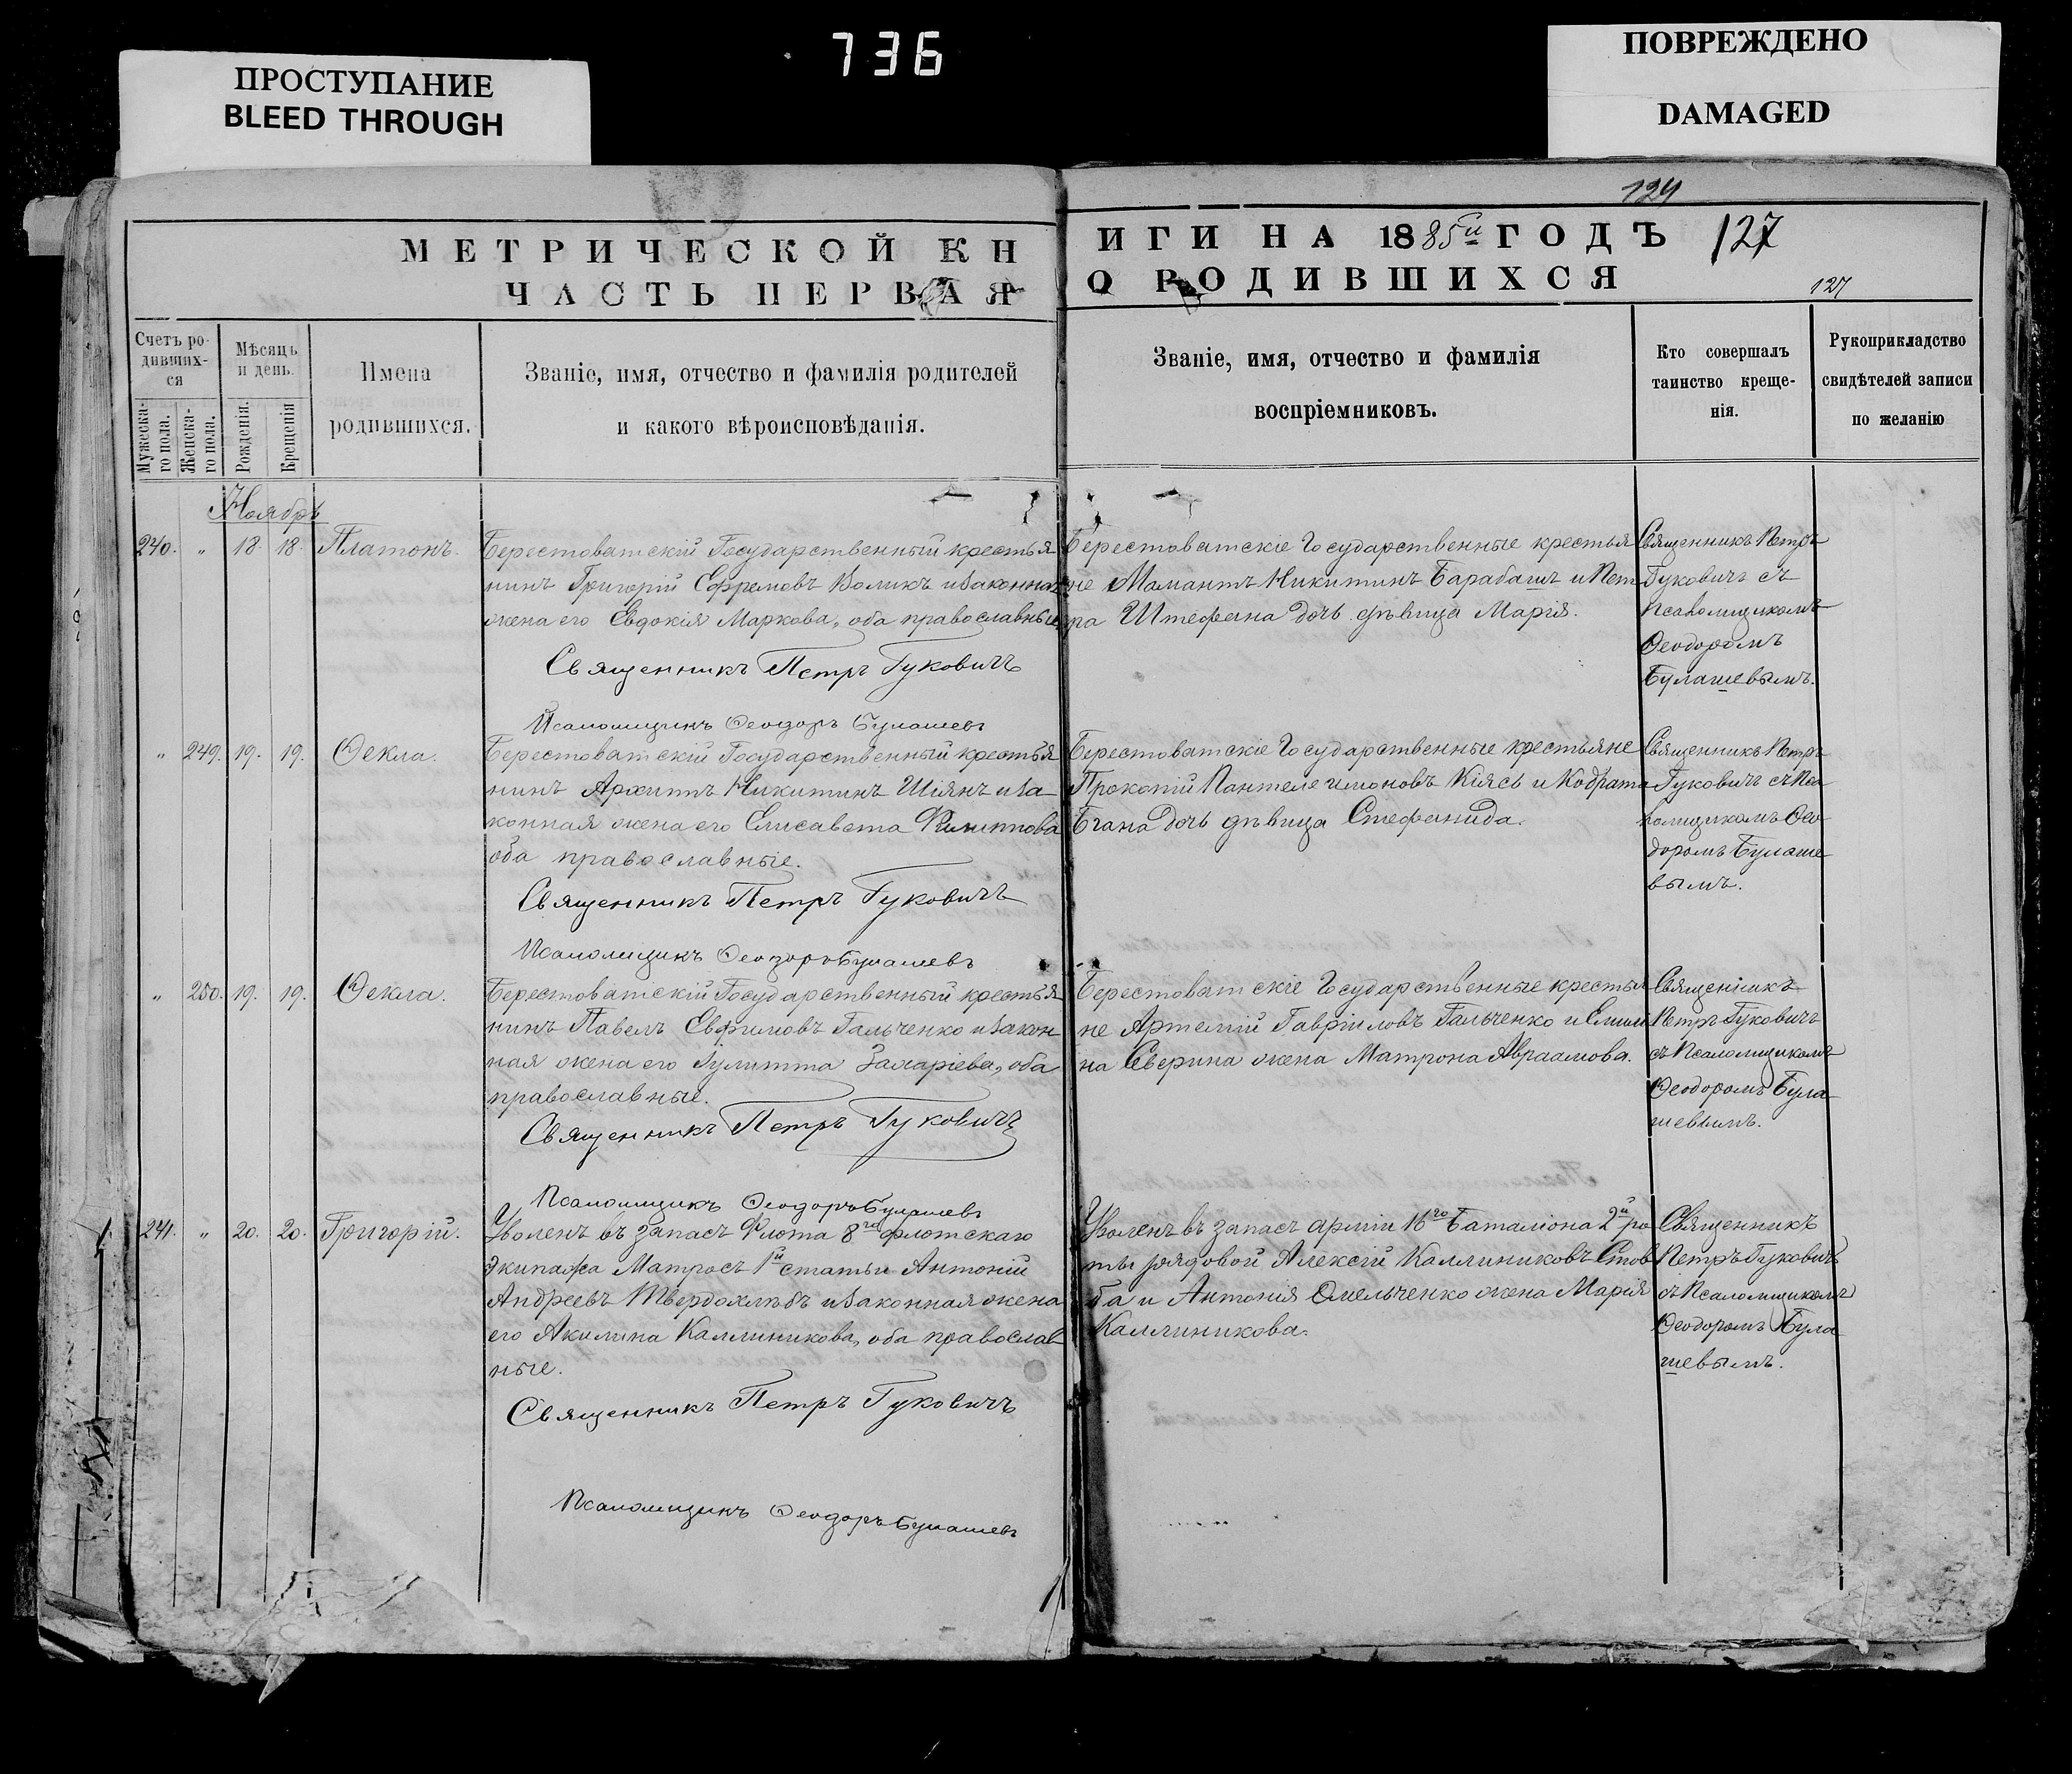 736
ПРОСТУПАНИЕ
BLEED THROUGH
ПОВРЕЖДЕНО
DAMAGED
124
МЕТРИЧЕСКОЙ КН
ЧАСТЬ ПЕРВАЯ
ИГИ НА 1885й ГОДЪ 127
О РОДИВШИХСЯ
127
Счетъ ро-
дивших-
ся
Мужеска-
го пола.
Женска-
го пола.
Мѣсяцъ
и день.
Рожденія.
Крещенія
Имена
родившихся.
Званіе, имя, отчество и фамилія родителей
и какого вѣроисповѣданія.
Званіе, имя, отчество и фамилія
воспріемниковъ.
Кто совершалъ
таинство креще-
нія.
Рукоприкладство
свидѣтелей записи
по желанію
Ноябрь
240. " 18. 18. Платонъ.
Берестоватскій Государственный крестья
нинъ Григорій Ефремовъ Воликъ и законная
жена его Евдокія Маркова, оба православные
Священникъ Петръ Гуковичъ
Псаломщикъ Ѳеодоръ Булашевъ
Берестоватскіе Государственные крестья
не Мамантъ Никитинъ Барабашъ и Пет
ра Штефана дочь дѣвица Марія.
Священникъ Петръ
Гуковичъ съ
Псаломщикомъ
Ѳеодоромъ
Булашевымъ.
" 249. 19. 19. Ѳекла.
Берестоватскій Государственный крестья
нинъ Архипъ Никитинъ Шіянъ и за-
конная жена его Елисавета Филиппова
оба православные.
Священникъ Петръ Гуковичъ
Псаломщикъ Ѳеодоръ Булашевъ
Берестоватскіе Государственные крестьяне
Прокопій Пантелеимоновъ Кіясь и Кодрата
Бгана дочь дѣвица Стефанида.
Священникъ Петръ
Гуковичъ съ Пса
ломщикомъ Ѳео-
доромъ Булаше
вымъ.
" 250. 19. 19. Ѳекла.
Берестоватскій Государственный крестья
нинъ Павелъ Евфимовъ Гальченко и закон
ная жена его Іулитта Захаріева, оба
православные.
Священникъ Петръ Гуковичъ
Псаломщикъ Ѳеодоръ Булашевъ
Берестоватскіе Государственные крестья
не Артемій Гавріиловъ Гальченко и
на Сверина жена Матрона Авраамова.
Священникъ
Петръ Гуковичъ
съ Псаломщикомъ
Ѳеодоромъ Була
шевымъ.
241. " 20. 20. Григорій.
Уволенъ въ запасъ Флота 8го флотскаго
Экипажа Матросъ 1й статьи Антоній
Андреевъ Твердохлѣбъ и законная жена
его Акилина Каллиникова, оба православ
ные.
Священникъ Петръ Гуковичъ
Псаломщикъ Ѳеодоръ Булашевъ
Уволенъ въ запасъ арміи 16го Баталіона 2й ро
ты рядовой Алексій Каллиниковъ Стов
ба и Антонія Омельченко жена Марія
Каллиникова.
Священникъ
Петръ Гуковичъ
съ Псаломщикомъ
Ѳеодоромъ Була
шевымъ.